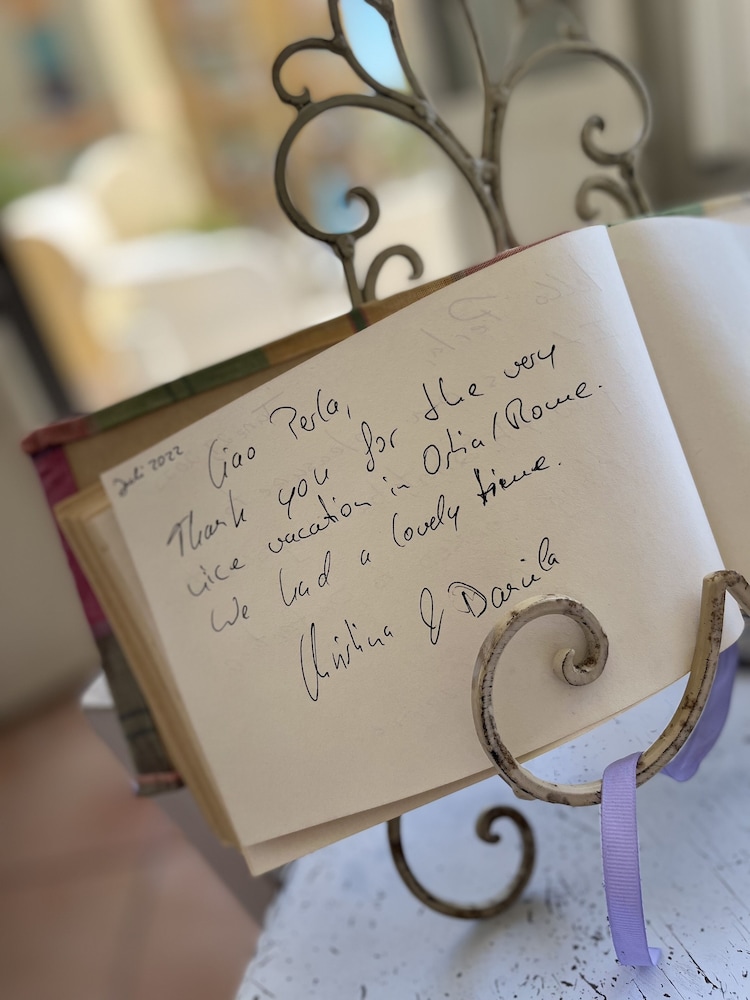 Juli 2022
Ciao Perla,
Thank you for the very
nice vacation in Ostia/Rome.
We had a lovely time.
Christina & Daniela